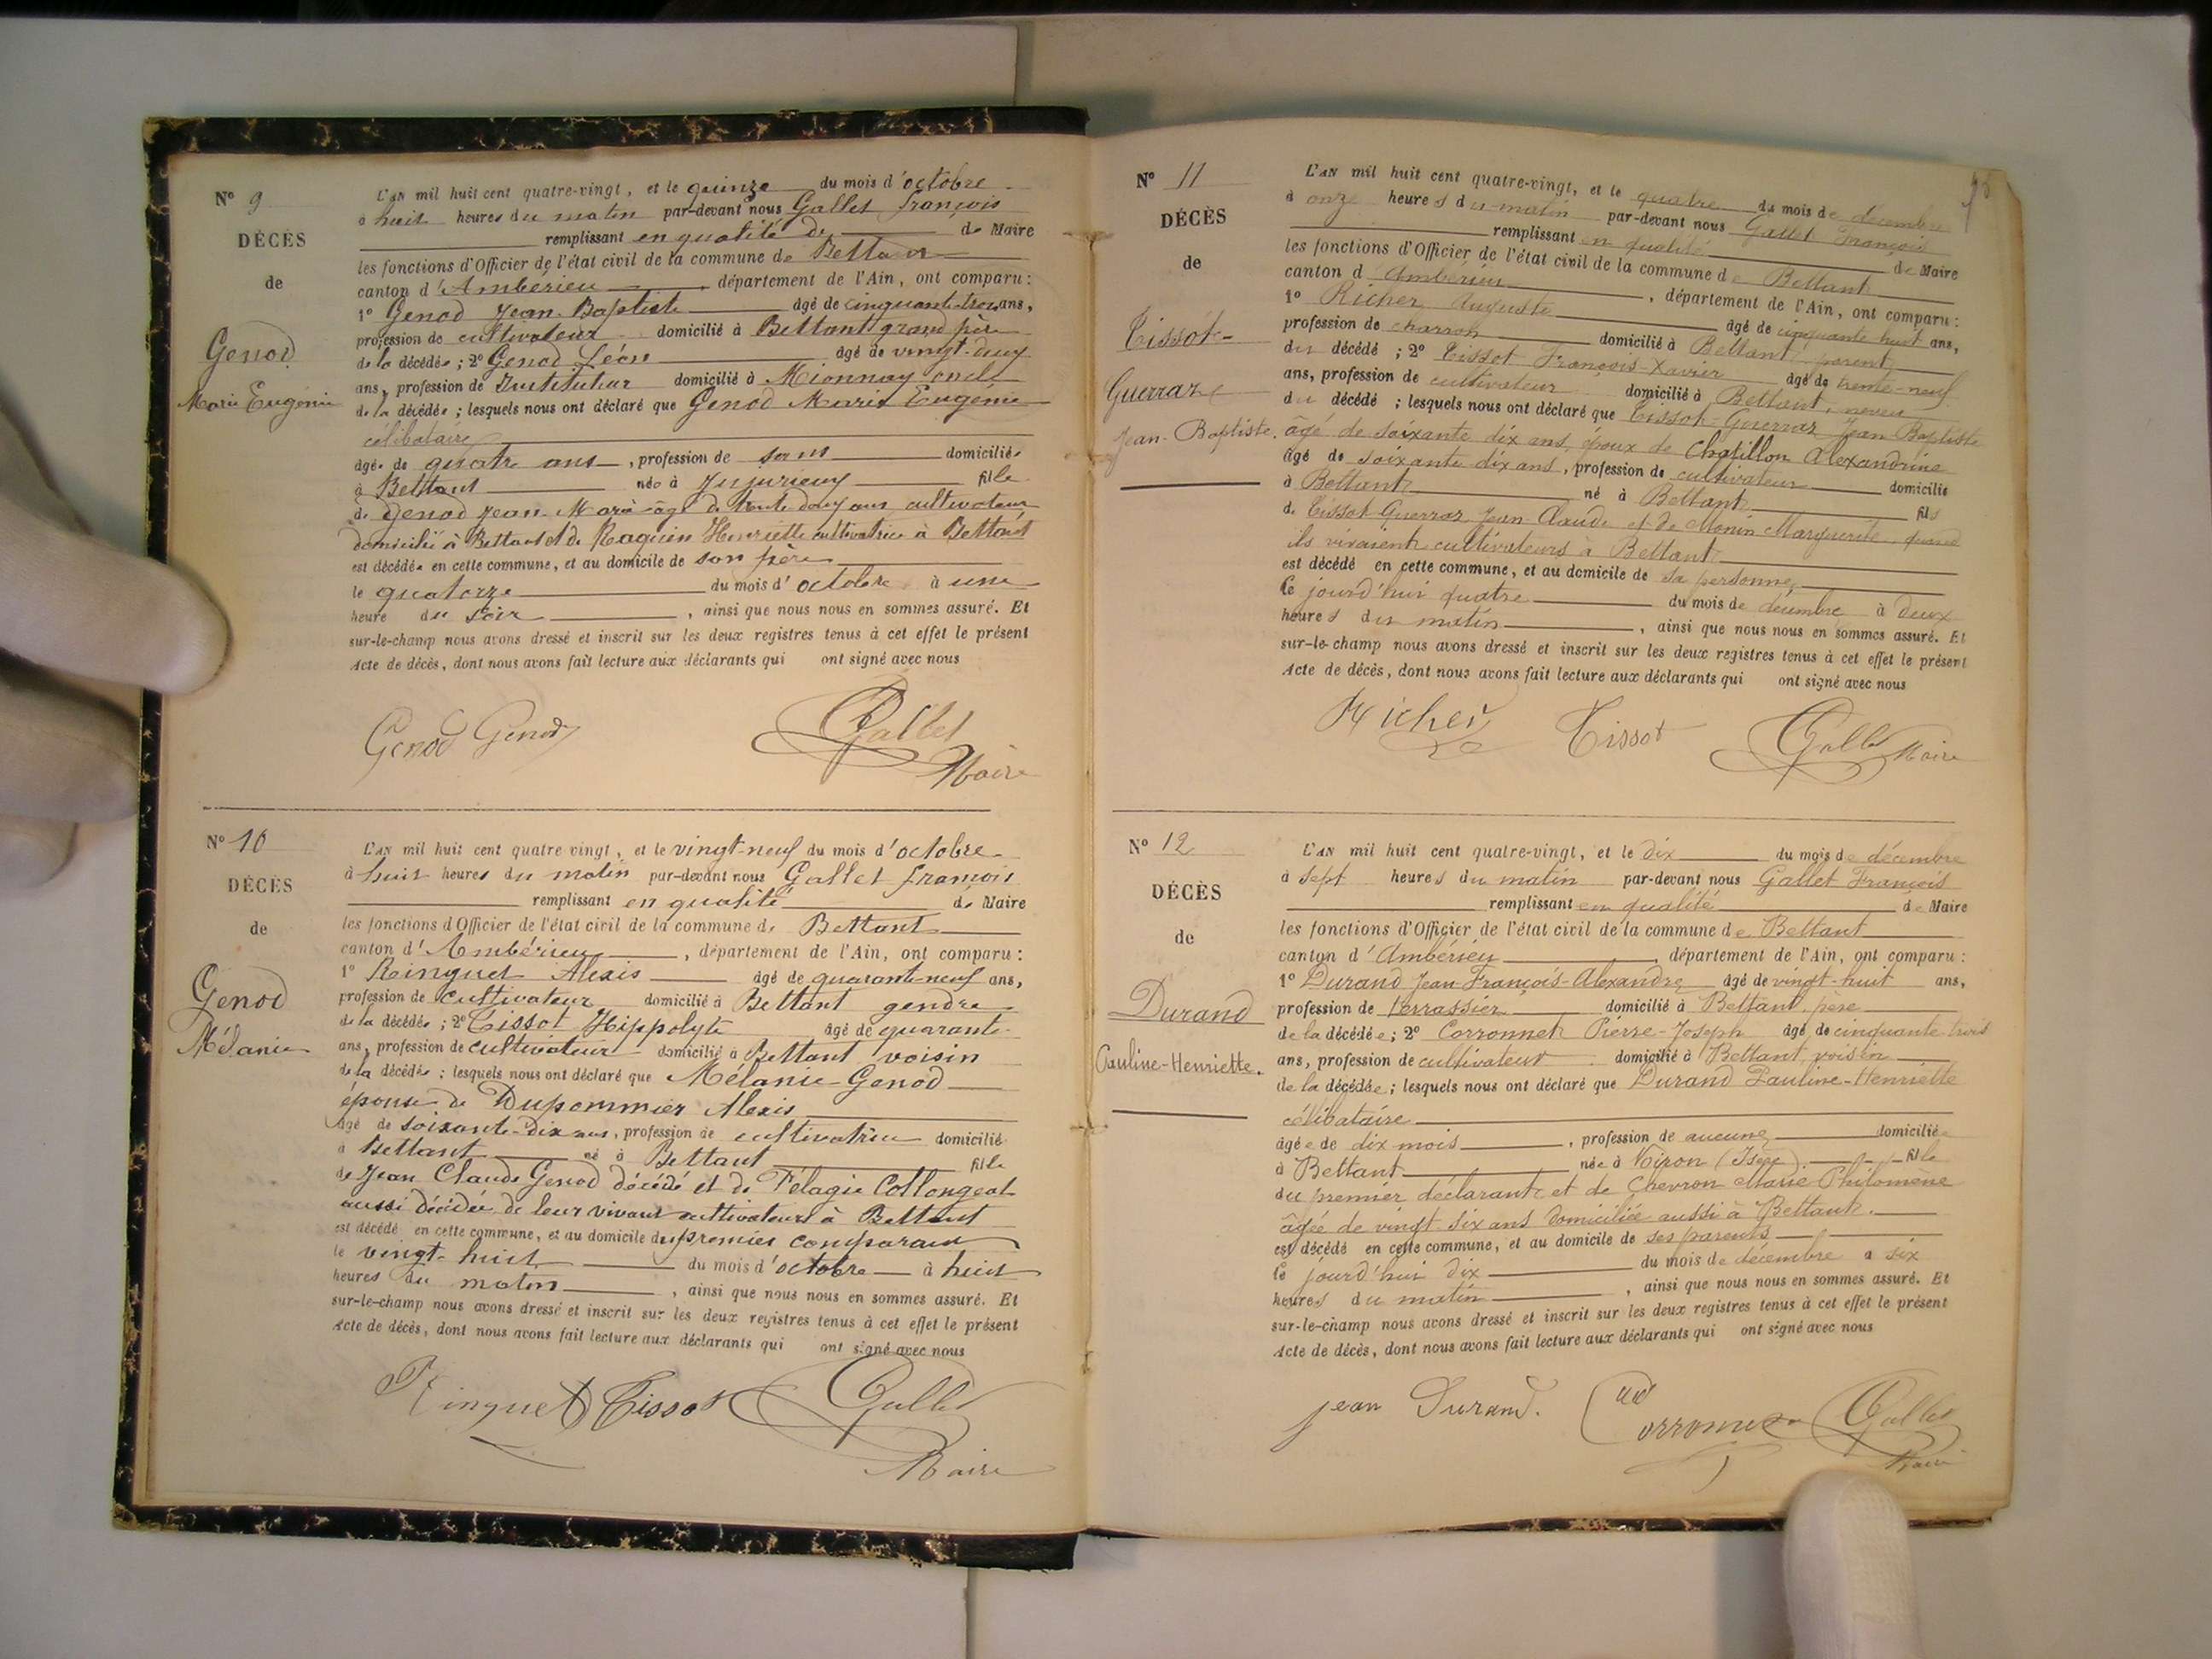 Nº 9
DÉCÈS
de
Genod
Marie Eugénie
L'AN mil huit cent quatre-vingt, et le quinze du mois d'octobre
à huit heures du matin par-devant nous Gallet françois
remplissant en qualité de de Maire
les fonctions d'Officier de l'état civil de la commune de Bettant
canton d'Ambérieu, département de l'Ain, ont comparu:
1º Genod Jean-Baptiste âgé de cinquante-trois ans,
profession de cultivateur domicilié à Bettant grand père
de la décédée; 2º Genod Léon âgé de vingt-deux
ans, profession de Instituteur domicilié à Mionnay oncle
de la décédée; lesquels nous ont déclaré que Genod Marie Eugénie
célibataire
âgée de quatre ans, profession de sans domiciliée
à Bettant née à Jujurieux fille
de Genod Jean-Marie âgé de trente deux ans cultivateur
domicilié à Bettant et de Henriette cultivatrice à Bettant
est décédée en cette commune, et au domicile de son père
le quatorze du mois d'octobre à une
heure du soir, ainsi que nous nous en sommes assuré. Et
sur-le-champ nous avons dressé et inscrit sur les deux registres tenus à cet effet le présent
Acte de décès, dont nous avons fait lecture aux déclarants qui ont signé avec nous
Genod Genod Gallet
Maire
Nº 10
DÉCÈS
de
Genod
Mélanie
L'AN mil huit cent quatre vingt, et le vingt-neuf du mois d'octobre
à huit heures du matin par-devant nous Gallet françois
remplissant en qualité de Maire
les fonctions d'Officier de l'état civil de la commune de Bettant
canton d'Ambérieu, département de l'Ain, ont comparu:
1º Ringuet Alexis âgé de quarante-neuf ans,
profession de cultivateur domicilié à Bettant gendre
de la décédée; 2º Tissot Hippolyte âgé de quarante
ans, profession de cultivateur domicilié à Bettant voisin
de la décédée; lesquels nous ont déclaré que Mélanie Genod
épouse de Dupommier Alexis
âgé de soixante-dix ans, profession de cultivatrice domicilié
à Bettant né à Bettant fille
de Jean Claude Genod décédé et de Pélagie Collongeat
aussi décédée de leur vivant cultivateurs à Bettant
est décédé en cette commune, et au domicile du premier comparant
le vingt-huit du mois d'octobre à huit
heures du matin, ainsi que nous nous en sommes assuré. Et
sur-le-champ nous avons dressé et inscrit sur les deux registres tenus à cet effet le présent
Acte de décès, dont nous avons fait lecture aux déclarants qui ont signé avec nous
Ringuet Tissot Gallet
Maire
Nº 11
DÉCÈS
de
Tissot-
Guerraz
Jean-Baptiste.
L'AN mil huit cent quatre-vingt, et le quatre du mois de décembre
à onze heures du matin par-devant nous Gallet François
remplissant en qualité de Maire
les fonctions d'Officier de l'état civil de la commune de Bettant
canton d'Ambérieu, département de l'Ain, ont comparu:
1º Richer Auguste âgé de cinquante huit ans,
profession de charron domicilié à Bettant parent
du décédé; 2º Tissot François-Xavier âgé de trente-neuf
ans, profession de cultivateur domicilié à Bettant, neveu
du décédé; lesquels nous ont déclaré que Tissot-Guerraz Jean Baptiste
âgé de soixante dix ans, époux de Chatillon Alexandrine
âgé de soixante dix ans, profession de cultivateur domicilié
à Bettant né à Bettant fils
de Tissot-Guerraz Jean-Claude et de Monin Marguerite quand
ils vivaient cultivateurs à Bettant
est décédé en cette commune, et au domicile de sa personne
le jourd'hui quatre du mois de décembre à deux
heures du matin, ainsi que nous nous en sommes assuré. Et
sur-le-champ nous avons dressé et inscrit sur les deux registres tenus à cet effet le présent
Acte de décès, dont nous avons fait lecture aux déclarants qui ont signé avec nous
Richer Tissot Gallet Maire
Nº 12
DÉCÈS
de
Durand
Pauline-Henriette.
L'AN mil huit cent quatre-vingt, et le dix du mois de décembre
à sept heures du matin par-devant nous Gallet François
remplissant en qualité de Maire
les fonctions d'Officier de l'état civil de la commune de Bettant
canton d'Ambérieu, département de l'Ain, ont comparu:
1º Durand Jean-François-Alexandre âgé de vingt-huit ans,
profession de terrassier domicilié à Bettant, père
de la décédée; 2º Corronnet Pierre-Joseph âgé de cinquante trois
ans, profession de cultivateur domicilié à Bettant, voisin
de la décédée; lesquels nous ont déclaré que Durand Pauline-Henriette
célibataire
âgée de dix mois, profession de aucune domiciliée
à Bettant née à Voiron (Isère) fille
du premier déclarant et de Chevron Marie Philomène
âgée de vingt six ans domiciliée aussi à Bettant.
est décédé en cette commune, et au domicile de ses parents
le jourd'hui dix du mois de décembre à six
heures du matin, ainsi que nous nous en sommes assuré. Et
sur-le-champ nous avons dressé et inscrit sur les deux registres tenus à cet effet le présent
Acte de décès, dont nous avons fait lecture aux déclarants qui ont signé avec nous
jean Durand. Gallet
Maire